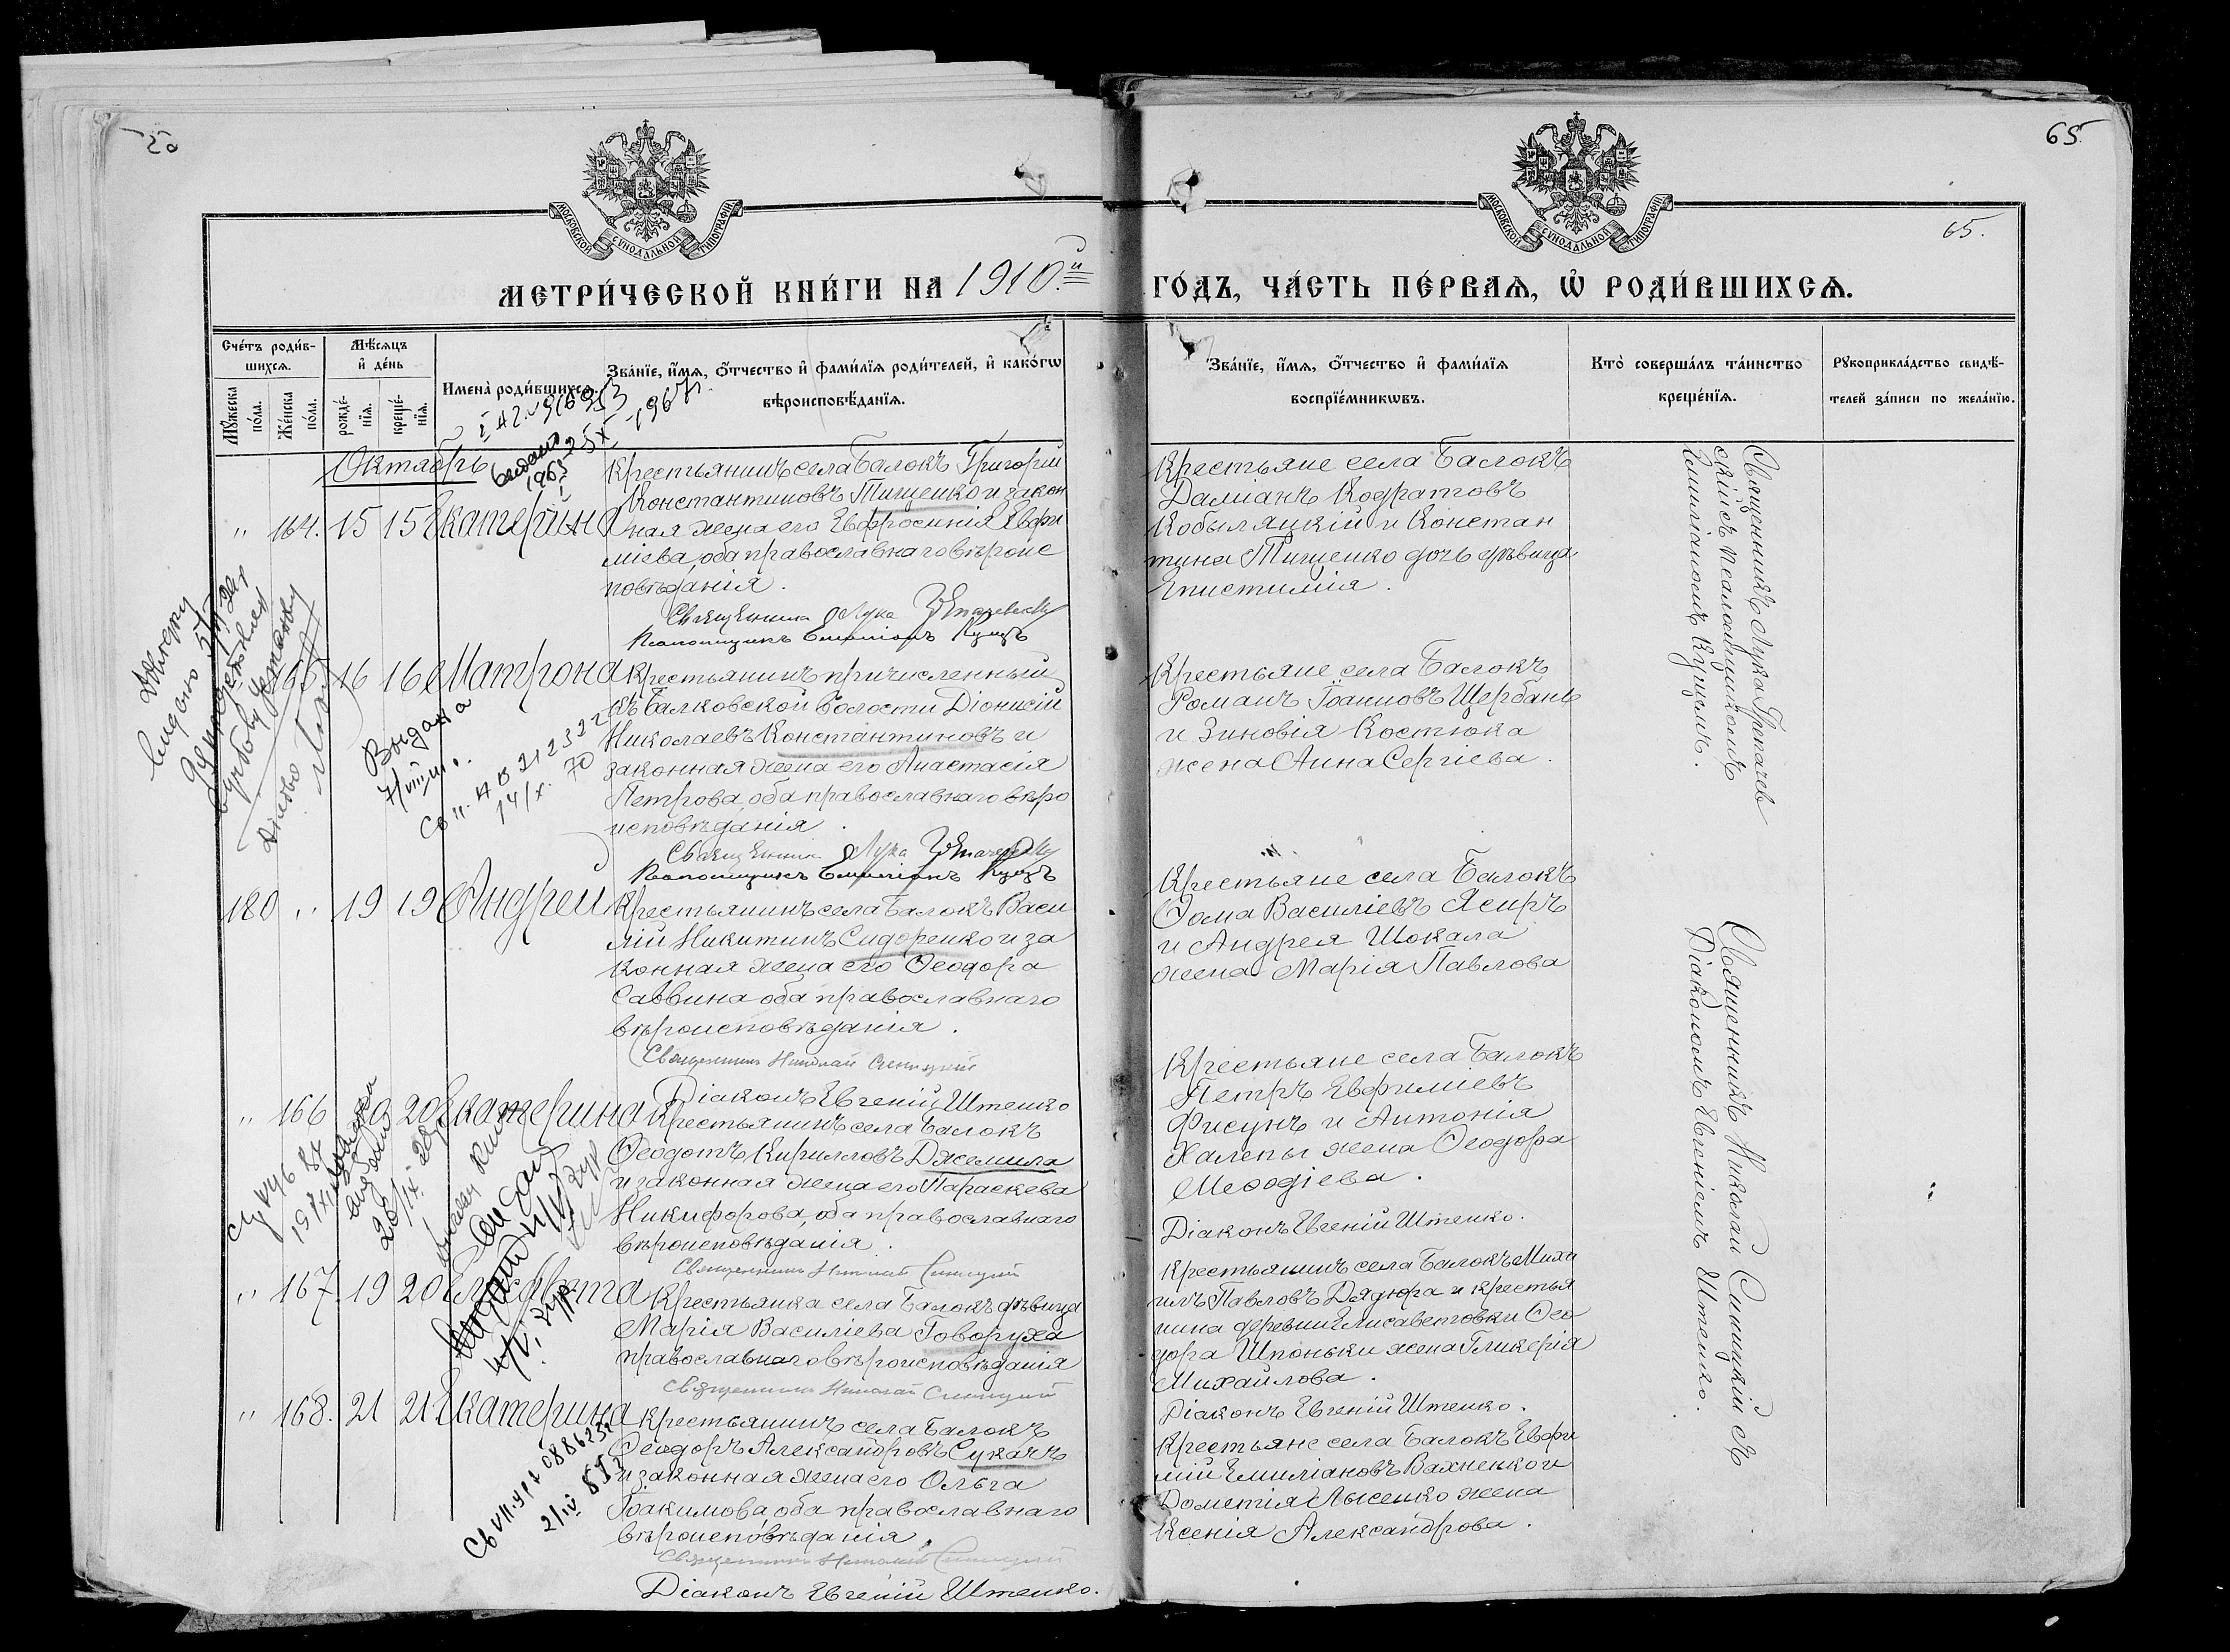 65
65.
МОСКОВСКОЙ СѴНОДАЛЬНОЙ ТИПОГРАФІИ
МОСКОВСКОЙ СѴНОДАЛЬНОЙ ТИПОГРАФІИ
МЕТРИ́ЧЕСКОЙ КНИ́ГИ НА 1910.й ГО́ДЪ, ЧА́СТЬ ПЕ́РВАѦ, Ѡ҆ РОДИ́ВШИХСѦ.
Сче́тъ роди́в-
шихсѧ.
Мꙋ́жеска
по́ла.
Же́нска
по́ла.
Мѣ́сѧцъ
и҆ де́нь
рожде́-
нїѧ.
креще́-
нїѧ.
Имена̀ роди́вшихсѧ.
Зва́нїе, и҆́мѧ, ѻ҆́тчество и҆ фами́лїѧ роди́телей, и҆ како́гѡ
вѣроисповѣ́данїѧ.
Зва́нїе, и҆́мѧ, ѻ҆́тчество и҆ фами́лїѧ
воспрїе́мниковъ.
Кто̀ соверша́лъ та́инство
креще́нїѧ.
Рꙋкоприкла́дство свидѣ́-
телей за́писи по жела́нїю.
Октябрь
" 164. 15 15 Екатерина
Крестьянинъ села Балокъ Григорій
Константиновъ Тищенко и закон
ная жена его Евфросинія Евфи
міева, оба православнаго вѣроис
повѣданія.
Священникъ Лука
Псаломщикъ Емиліанъ Куцъ
Крестьяне села Балокъ
Даміанъ Кодратовъ
Кобыляцкій и Констан
тина Тищенко дочь дѣвица
Епистимія.
Священникъ Лука
Псаломщикомъ
Емиліаномъ Куцымъ.
165 16 16 Матрона
Крестьянинъ причисленный
къ Балковской волости Діонисій
Николаевъ Константиновъ и
законная жена его Анастасія
Петрова, оба православнаго вѣро
исповѣданія.
Священникъ Лука
Псаломщикъ Емиліанъ Куцъ
Крестьяне села Балокъ
Романъ Іоанновъ Щербань
и Зиновія Костюка
жена Анна Сергіева.
Выдана
180 " 19 19 Андрей
Крестьянинъ села Балокъ Васи
лій Никитинъ Сидоренко и за
конная жена его Ѳеодора
Саввина оба православнаго
вѣроисповѣданія.
Священникъ Николай Синицкій
Діаконъ Евгеній Штепко
Крестьяне села Балокъ
Ѳома Василіевъ Ясиръ
и Андрея Шокала
жена Марія Павлова
Священникъ Николай Синицкій съ
Діакономъ Евгеніемъ Штепко.
" 166 20 20 Екатерина
Крестьянинъ села Балокъ
Ѳеодотъ Кирилловъ Джемила
и законная жена его Параскева
Никифорова, оба православнаго
вѣроисповѣданія.
Священникъ Николай Синицкій
Крестьяне села Балокъ
Петръ Евфиміевъ
Фисунъ и Антонія
Халепы жена Ѳеодора
Меѳодіева.
Діаконъ Евгеній Штепко.
" 167. 19 20 Елисавета
Крестьянка села Балокъ дѣвица
Марія Василіева Говоруха
православнаго вѣроисповѣданія
Священникъ Николай Синицкій
Крестьянинъ села Балокъ Миха
илъ Павловъ Дядюра и крестья
нина деревни Елисаветовки Ѳео
дора Шпоньки жена Гликерія
Михайлова.
Діаконъ Евгеній Штепко.
" 168. 21 21 Екатерина
Крестьянинъ села Балокъ
Ѳеодоръ Александровъ Сукачъ
и законная жена его Ольга
Іоакимова, оба православнаго
вѣроисповѣданія.
Священникъ Николай Синицкій
Діаконъ Евгеній Штепко.
Крестьяне села Балокъ Евфи
мій Емиліановъ Вахненко и
Дометія Лысенко жена
Ксенія Александрова.